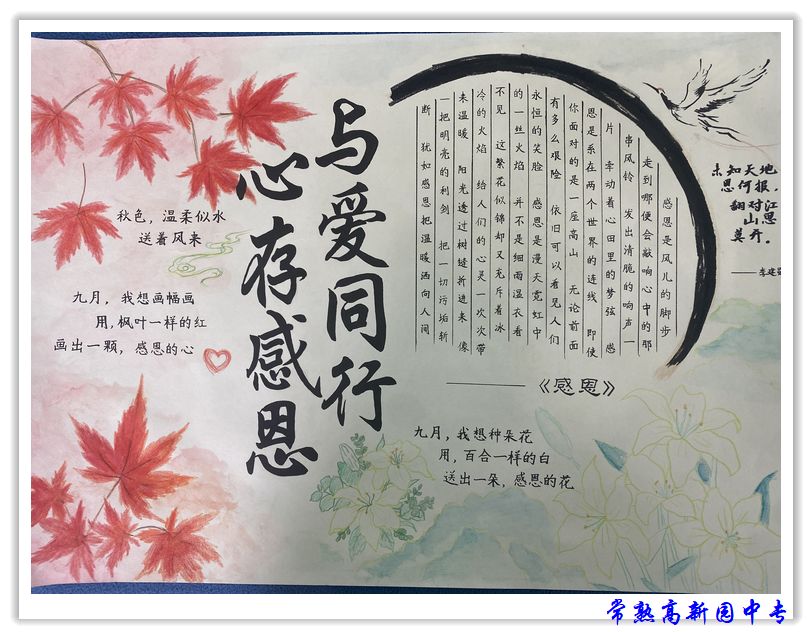 与爱同行
心存感恩
秋色，温柔似水
送着风来
九月，我想画幅画
用，枫叶一样的红
画出一颗，感恩的心
感恩是风儿的脚步
走到哪便会敲响心中的那
串风铃 发出清脆的响声一
片 牵动着心田里的梦弦 感
恩是系在两个世界的连线 即使
你面对的是一座高山 无论前面
有多么艰险 依旧可以看见人们
永恒的笑脸 感恩是漫天霓虹中
的一丝火焰 并不是细雨湿衣看
不见 这繁花似锦却又充斥着冰
冷的火焰 给人们的心灵一次次带
来温暖 阳光透过树缝折进来 像
一把明亮的利剑 把一切污垢斩
断 犹如感恩把温暖洒向人间
——《感恩》
未知天地
恩何报，
翻对江
山思
莫开。
——李建
九月，我想种朵花
用，百合一样的白
送出一朵，感恩的花
常熟高新园中专